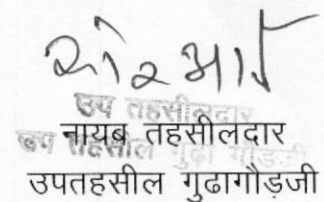 उप तहसीलदार
नायब तहसीलदार
उप तहसील गुढा गौडजी
उपतहसील गुढागौड़जी